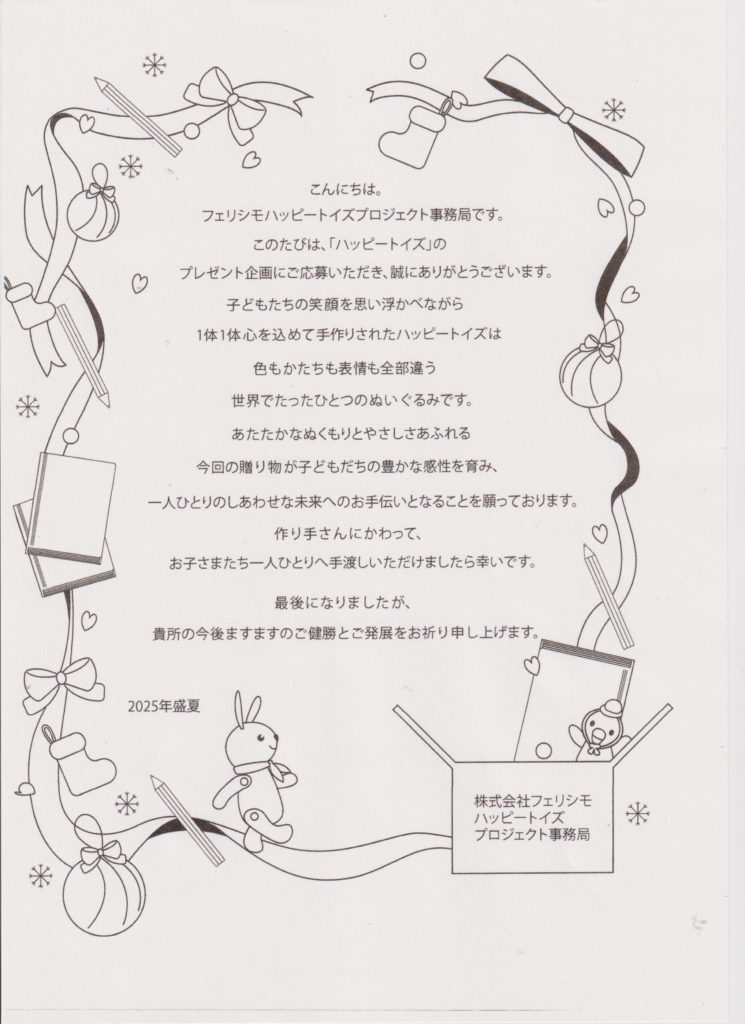 こんにちは。
フェリシモハッピートイズプロジェクト事務局です。
このたびは、「ハッピートイズ」の
プレゼント企画にご応募いただき、誠にありがとうございます。
子どもたちの笑顔を思い浮かべながら
1体1体心を込めて手作りされたハッピートイズは
色もかたちも表情も全部違う
世界でたったひとつのぬいぐるみです。
あたたかなぬくもりとやさしさあふれる
今回の贈り物が子どもだちの豊かな感性を育み、
一人ひとりのしあわせな未来へのお手伝いとなることを願っております。
作り手さんにかわって、
お子さまたち一人ひとりへ手渡しいただけましたら幸いです。
最後になりましたが、
貴所の今後ますますのご健勝とご発展をお祈り申し上げます。
2025年盛夏
株式会社フェリシモ
ハッピートイズ
プロジェクト事務局